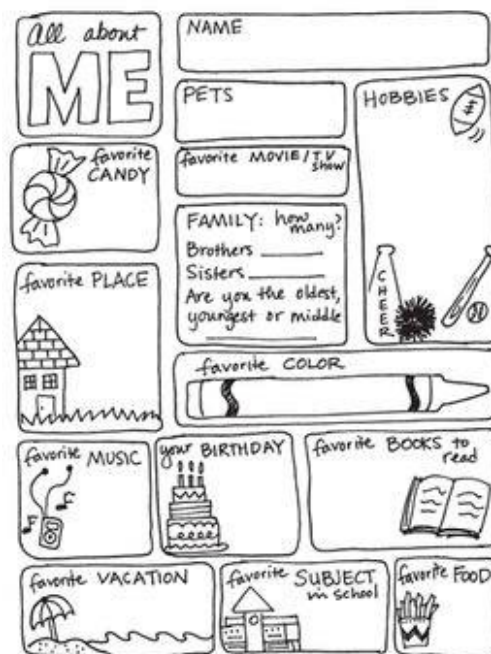 All about
ME
NAME
PETS
HOBBIES
favorite
CANDY
favorite MOVIE/TV
show
FAMILY: how
many?
Brothers
Sisters
Are you the oldest,
youngest or middle
favorite PLACE
CHEER
favorite COLOR
favorite MUSIC
your BIRTHDAY
favorite BOOKS to
read
favorite VACATION
favorite SUBJECT
in school
favorite FOOD